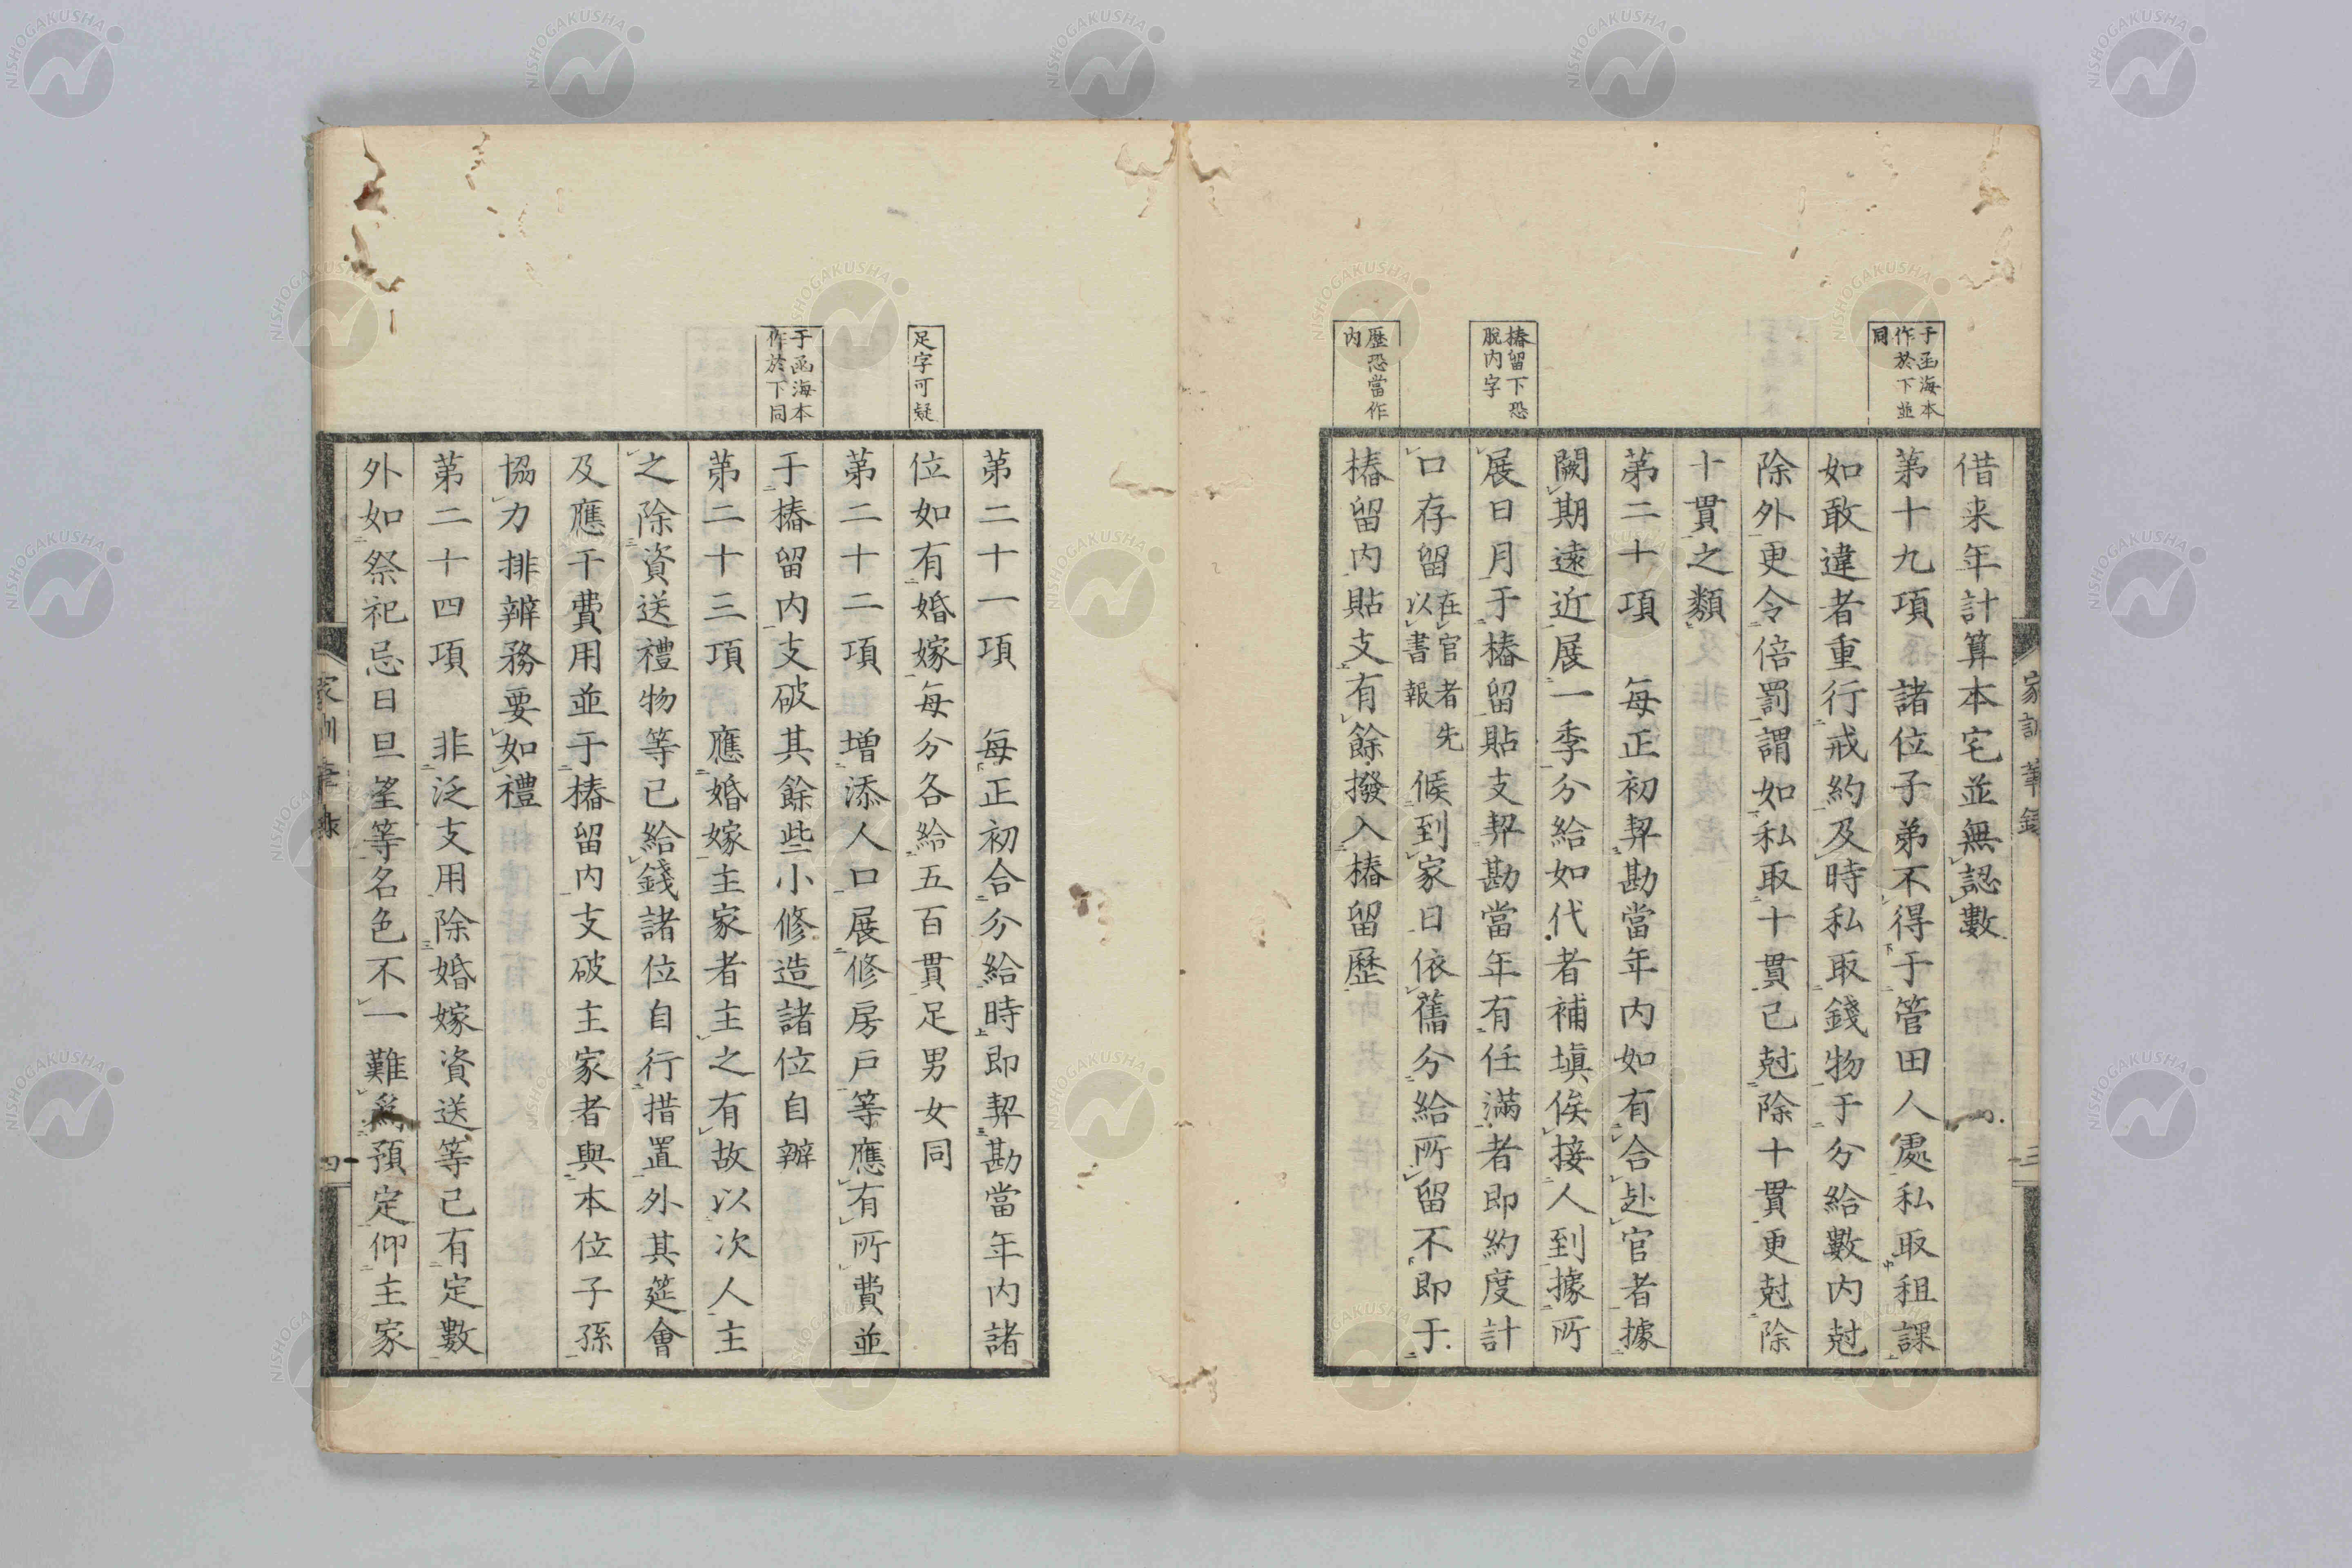 于函海本
作於下並
同
椿留下恐
脫内字
歷恐當作
内
借来年計算本宅並無認數
第十九項 諸位子弟不得于管田人處私取租課
如敢違者重行戒約及時私取錢物于分給數内尅
除外更令倍罰謂如私取十貫已尅除十貫更尅除
十貫之類
第二十項 每正初契勘當年内如有合赴官者據
闕期遠近展一季分給如代者補填俟接人到據所
展日月于椿留貼支契勘當年有任滿者即約度計
口存留在官者先以書報候到家日依舊分給所留不即于
椿留内貼支有餘撥入椿留歷
家訓筆錄
三
足字可疑
于函海本
作於下同
第二十一項 每正初合分給時即契勘當年内諸
位如有婚嫁每分各給五百貫足男女同
第二十二項 增添人口展修房戶等應有所費並
于椿留内支破其餘些小修造諸位自辦
第二十三項 應婚嫁主家者主之有故以次人主
之除資送禮物等已給錢諸位自行措置外其筵會
及應干費用並于椿留内支破主家者與本位子孫
協力排辦務要如禮
第二十四項 非泛支用除婚嫁資送等已有定數
外如祭祀忌日旦望等名色不一難爲預定仰主家
家訓筆錄
四
NISHOGAKUSHA